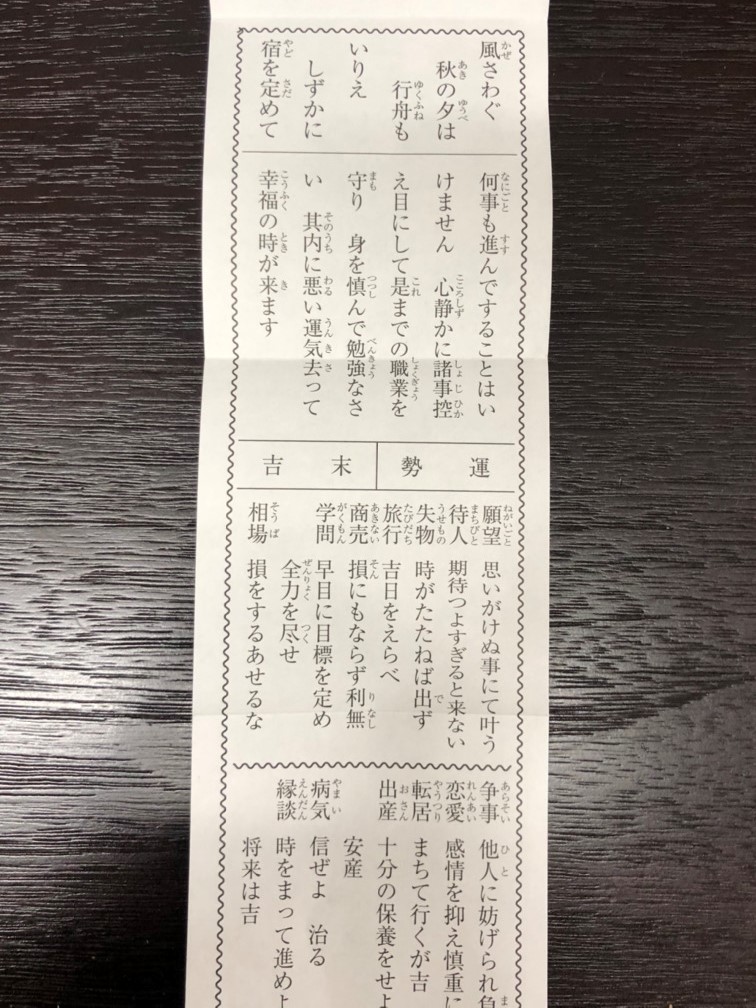 風さわぐ
秋の夕は
行舟も
いりえ
しずかに
宿を定めて
何事も進んですることはい
けません　心静かに諸事控
え目にして是までの職業を
守り　身を慎んで勉強なさ
い　其内に悪い運気去って
幸福の時が来ます
運勢
末吉
願望　思いがけぬ事にて叶う
待人　期待つよすぎると来ない
失物　時がたたねば出ず
旅行　吉日をえらべ
商売　損にもならず利無
学問　早目に目標を定め
全力を尽せ
相場　損をするあせるな
争事　他人に妨げられ負
恋愛　感情を抑え慎重に
転居　まちて行くが吉
出産　十分の保養をせよ
安産
病気　信ぜよ　治る
縁談　時をまって進めよ
将来は吉